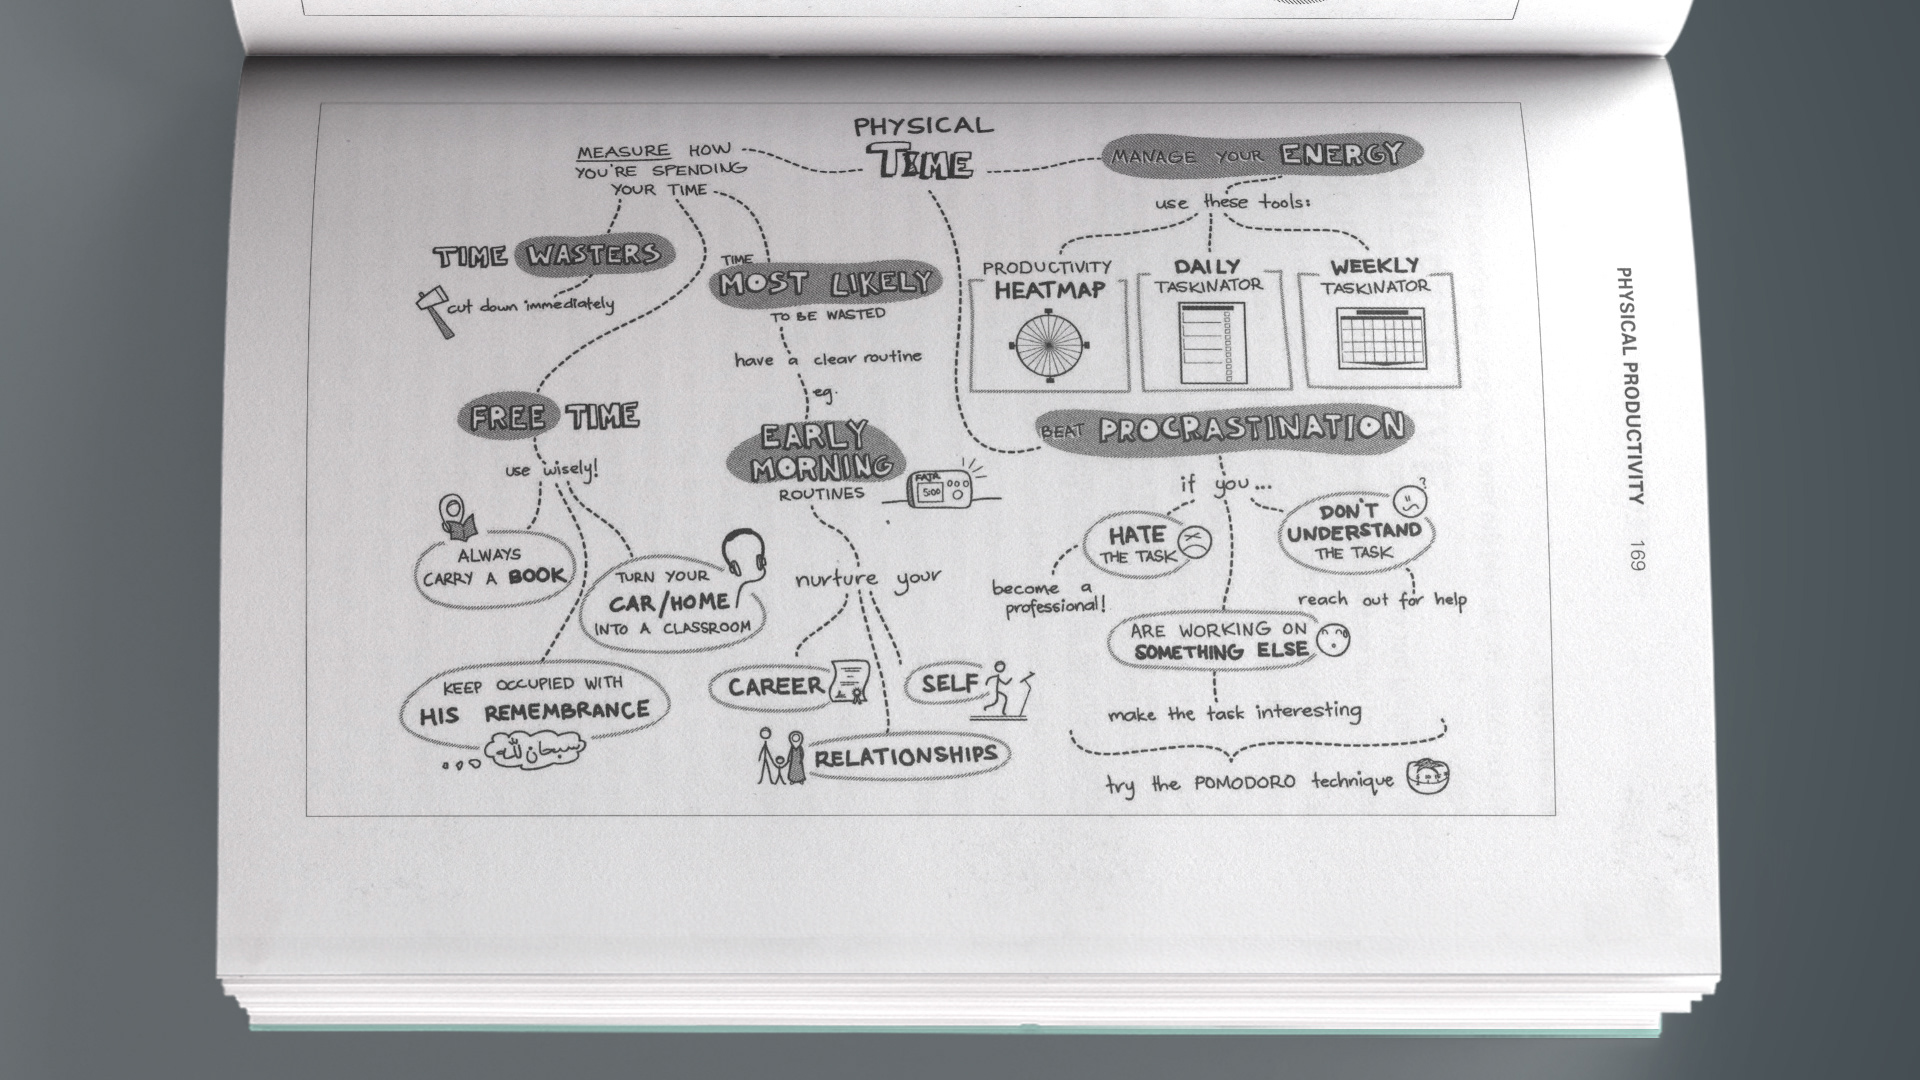 PHYSICAL
TIME
MEASURE HOW
YOU'RE SPENDING
YOUR TIME
TIME WASTERS
cut down immediately
FREE TIME
use wisely!
ALWAYS
CARRY A BOOK
TURN YOUR
CAR/HOME
INTO A CLASSROOM
KEEP OCCUPIED WITH
HIS REMEMBRANCE
سبحان الله
TIME
MOST LIKELY
TO BE WASTED
have a clear routine
eg.
EARLY
MORNING
ROUTINES
FAJR
5:00
nurture your
CAREER
SELF
RELATIONSHIPS
MANAGE YOUR ENERGY
use these tools:
PRODUCTIVITY
HEATMAP
DAILY
TASKINATOR
WEEKLY
TASKINATOR
BEAT PROCRASTINATION
if you...
HATE
THE TASK
become a
professional!
DON'T
UNDERSTAND
THE TASK
?
reach out for help
ARE WORKING ON
SOMETHING ELSE
make the task interesting
try the POMODORO technique
PHYSICAL PRODUCTIVITY 169